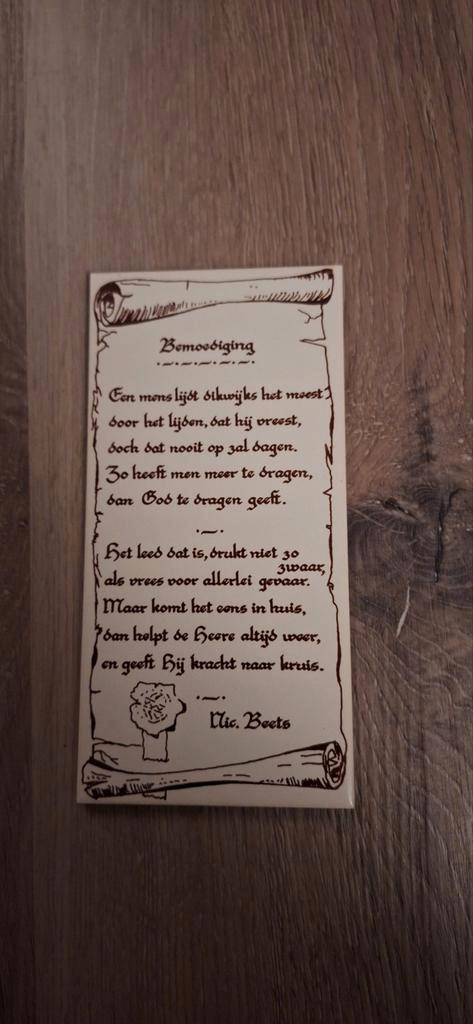 Bemoediging
Een mens lijdt dikwijls het meest
door het lijden, dat hij vreest,
doch dat nooit op zal dagen.
Zo heeft men meer te dragen,
dan God te dragen geeft.
Het leed dat is, drukt niet zo
zwaar,
als vrees voor allerlei gevaar.
Maar komt het eens in huis,
dan helpt de Heere altijd weer,
en geeft Hij kracht naar kruis.
Nic. Beets